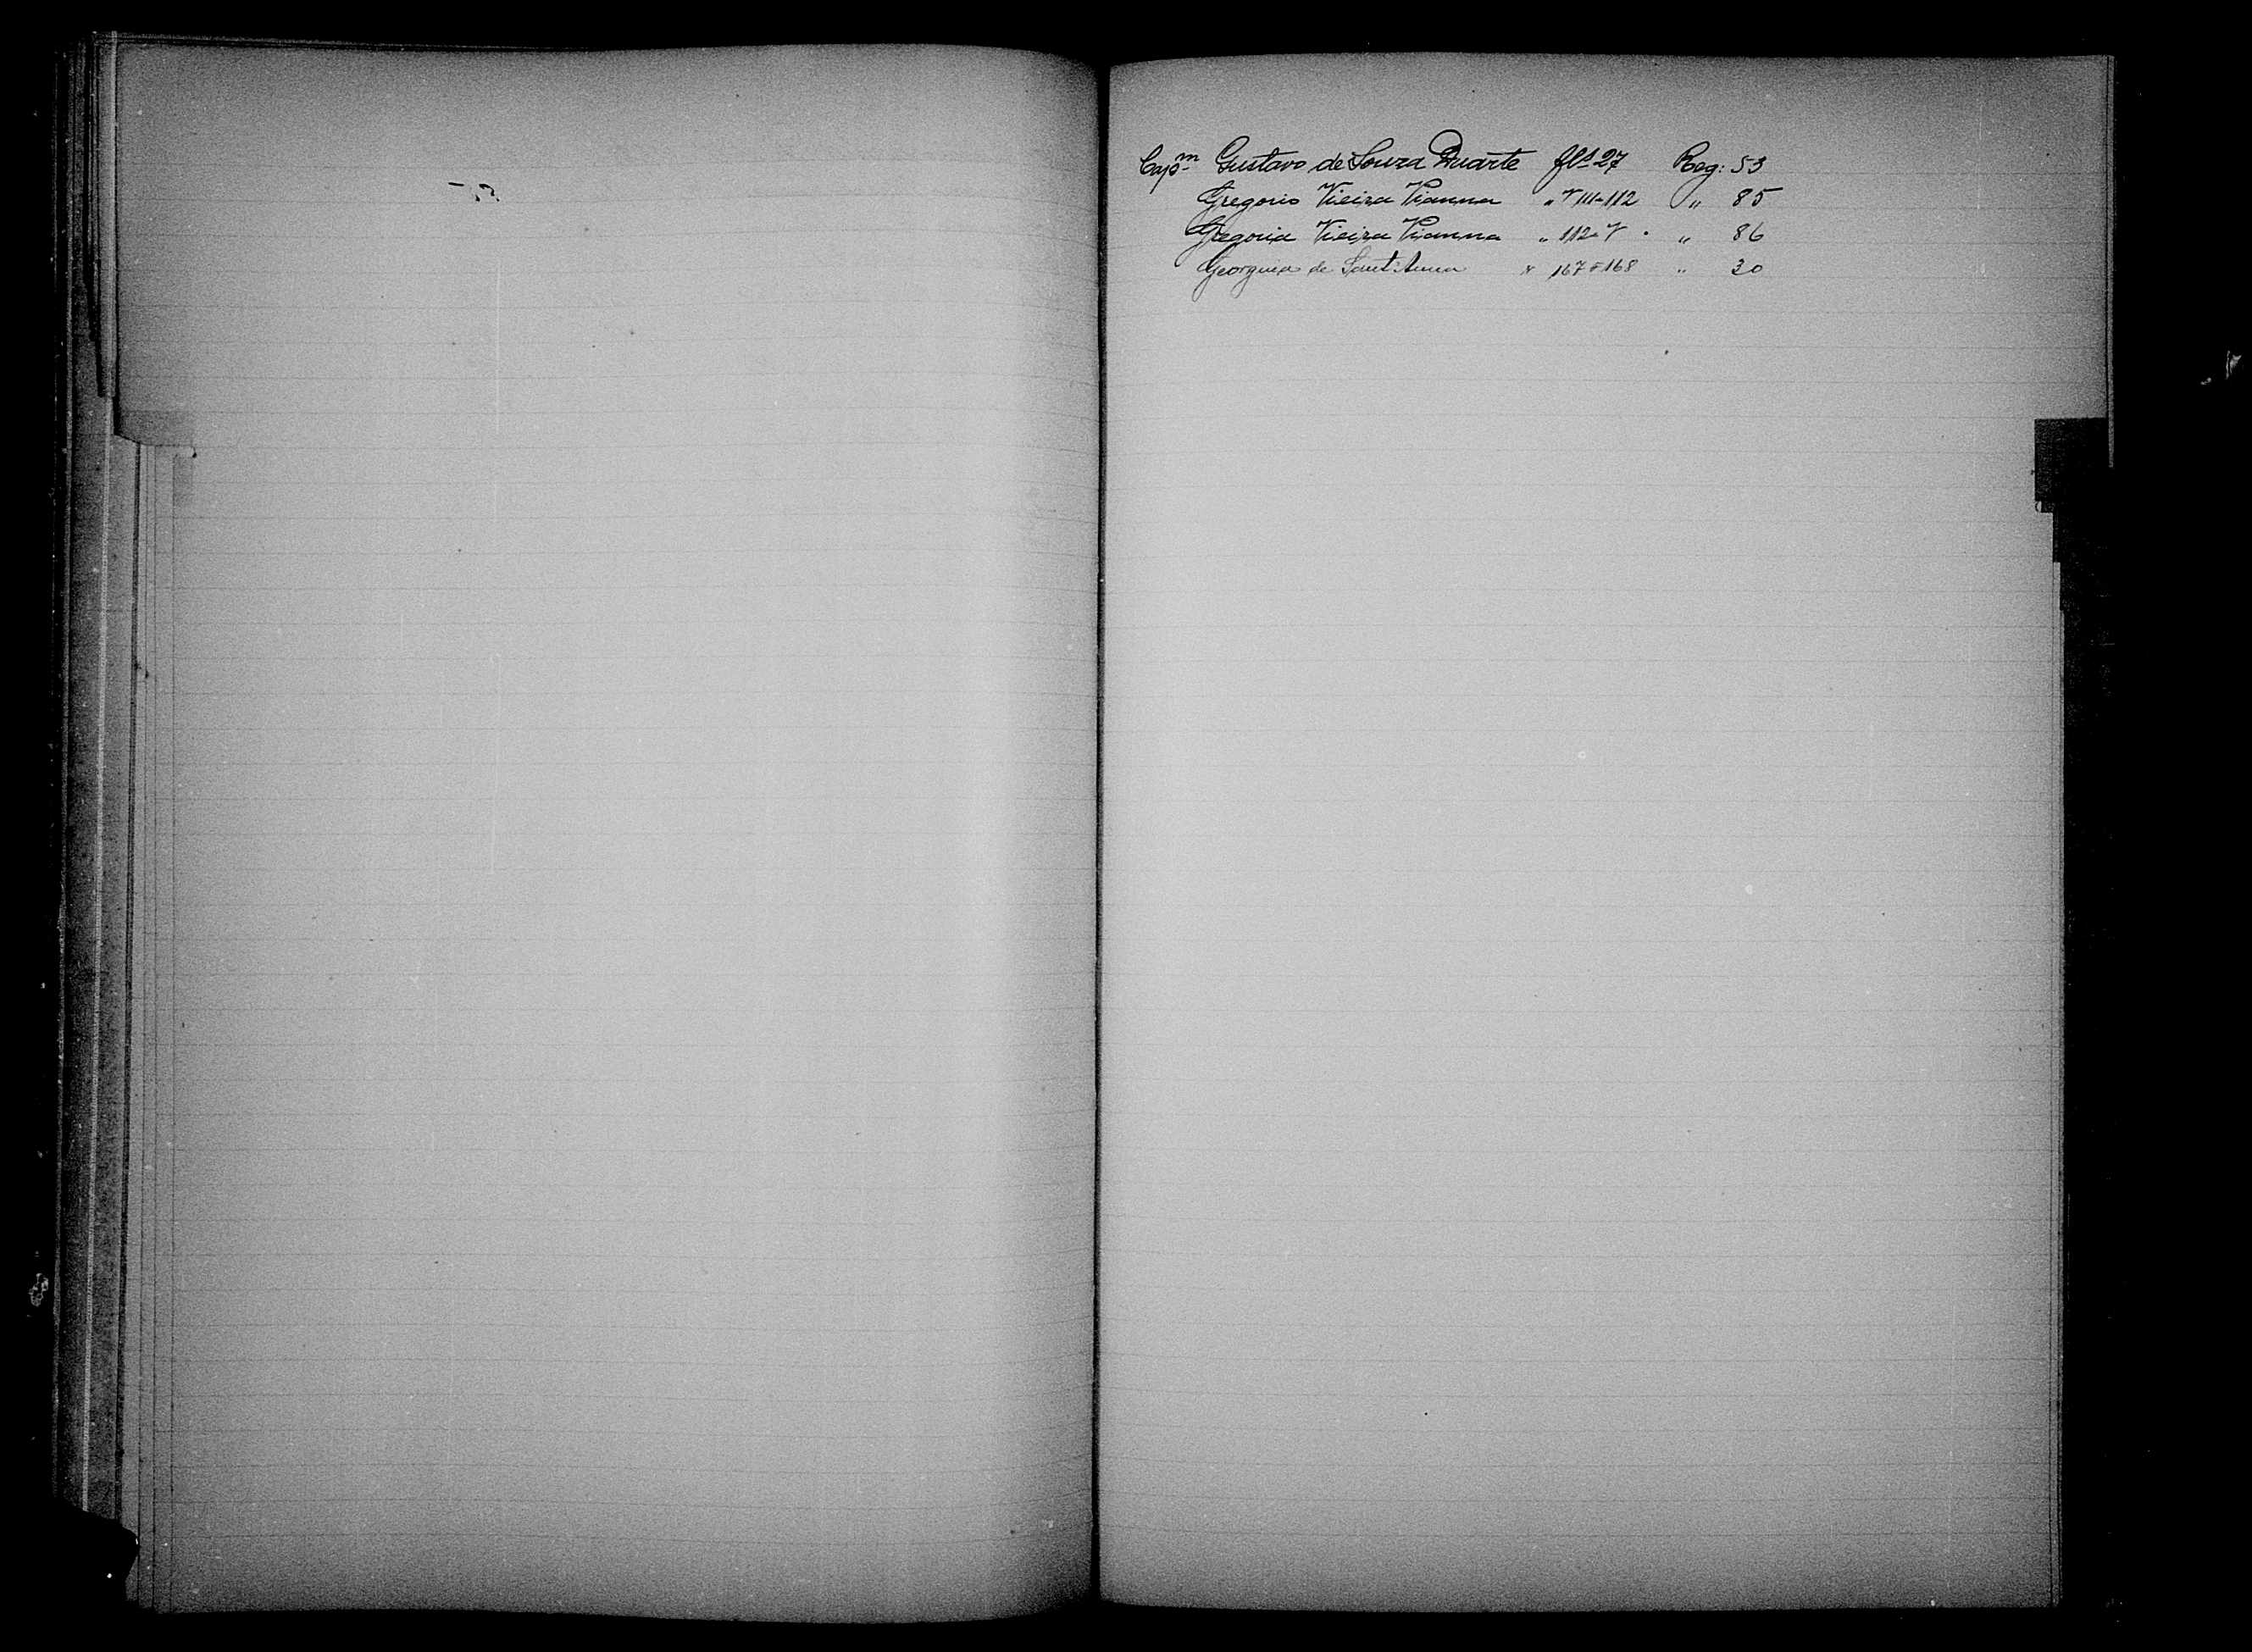 Capm Gustavo de Souza Duarte fls 27 Reg: 53
Gregorio Vieira Vianna " v 111-112 " 85
Gregoria Vieira Vianna " 112-v " 86
Georgina de Sant'Anna " 167 168 " 30